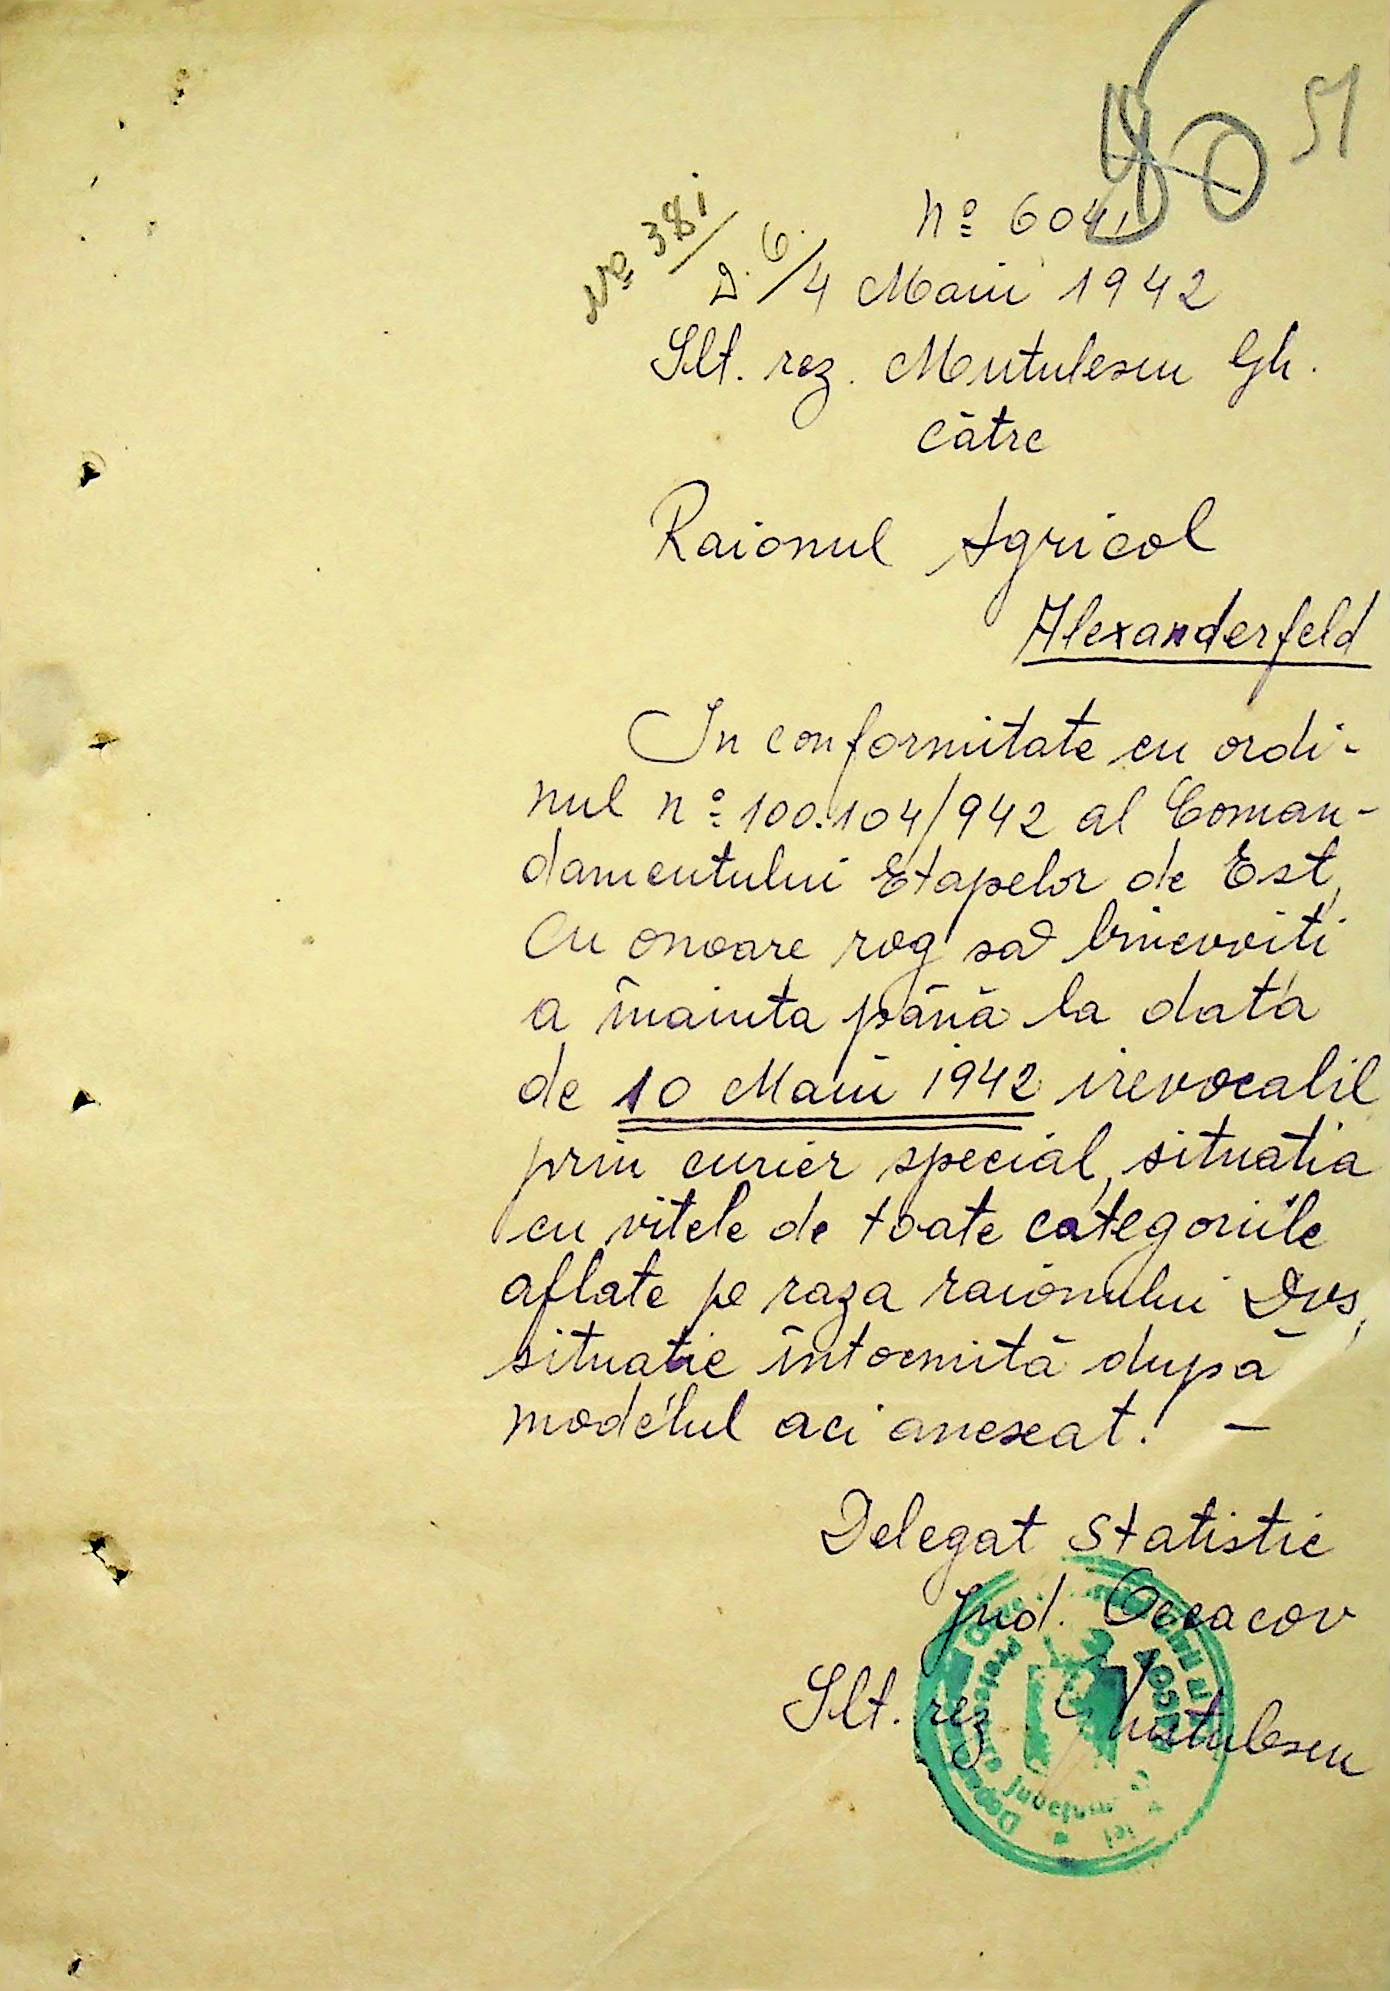 51
Nº 381
Nº 6041
D. 6/4 Maiu 1942
Slt. rez. Mutulescu Gh.
Către
Raionul Agricol
Alexanderfeld
In conformitate cu ordi-
nul nº 100.104/942 al Coman-
damentului Etapelor de Est,
cu onoare rog să binevoiți
a înainta până la data
de 10 Maiu 1942 irevocabil
prin curier special, situatia
cu vitele de toate categoriile
aflate pe raza raionului Dvs,
situație întocmită după
modelul aci anexat. —
Delegat Statistic
Jud. Oceacov
Slt. rez. G. Mutulescu
Prefectura Județului